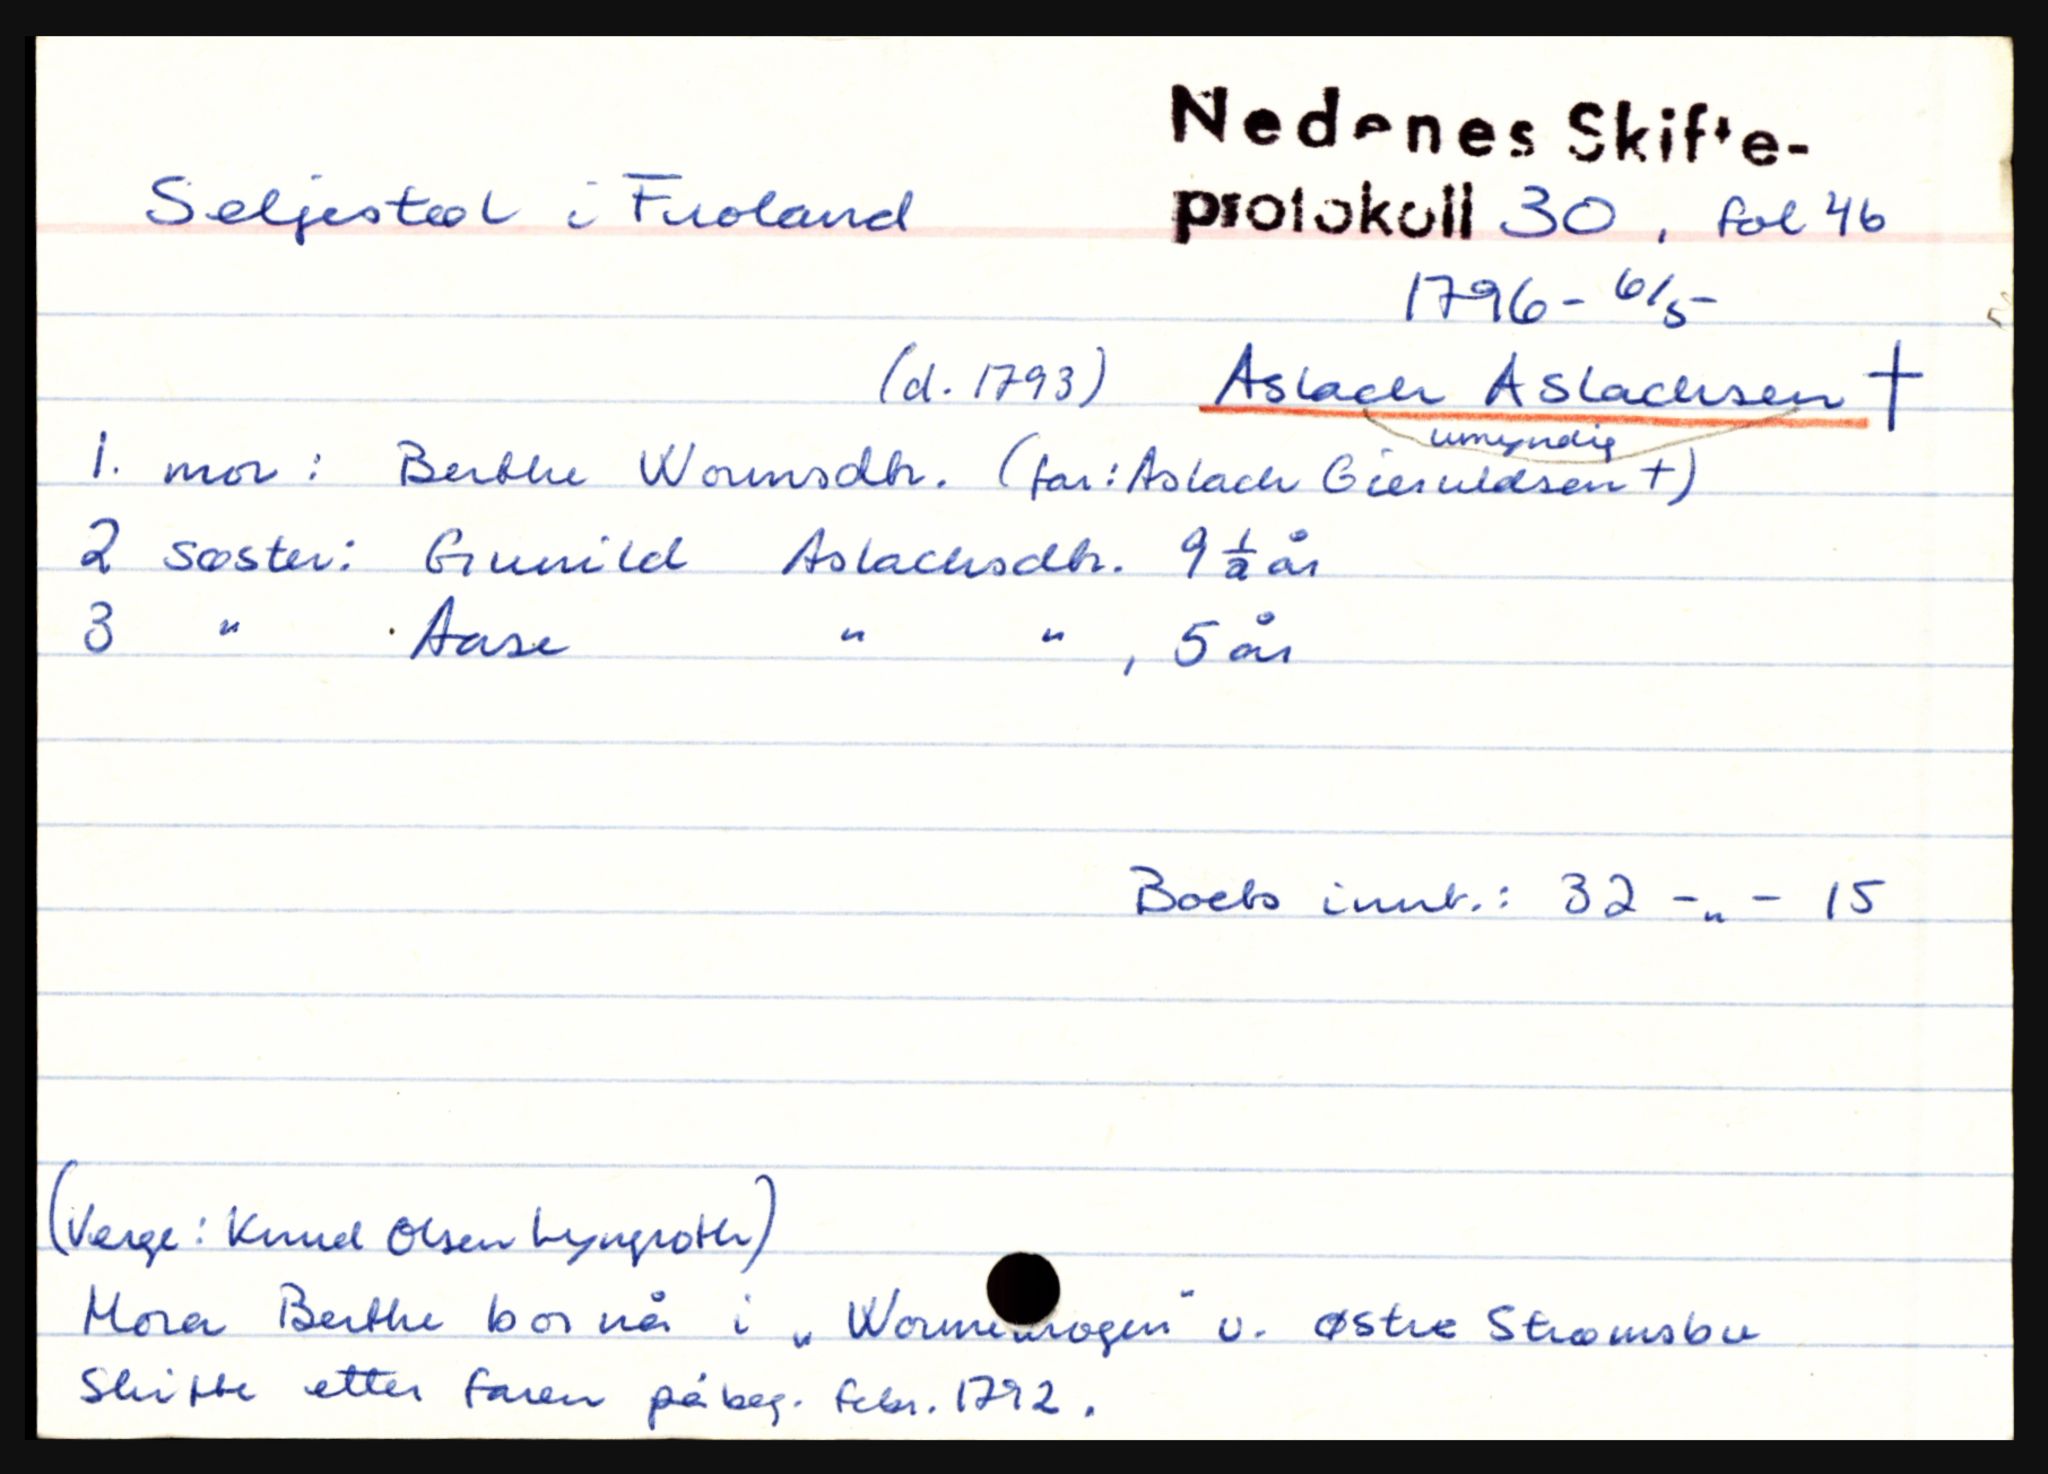 Nedenes Skifte-
Seljestad i Froland
protokoll 30, fol 46
1796 - 6/5 -
(d. 1793) Aslach Aslachsen †
umyndig
1. mor: Berthe Wormsdtr. (far: Aslach Gieruldsen +)
2 søster: Gunild Aslachsdtr. 9 1/2 år
3 " Aase " ", 5 år
Boets innt.: 32 - " - 15
(Verge: Knud Olsen Lyngroth)
Mora Berthe bor nå i „ v. østre Strømsbu
Skifte etter faren påbeg. febr. 1792.